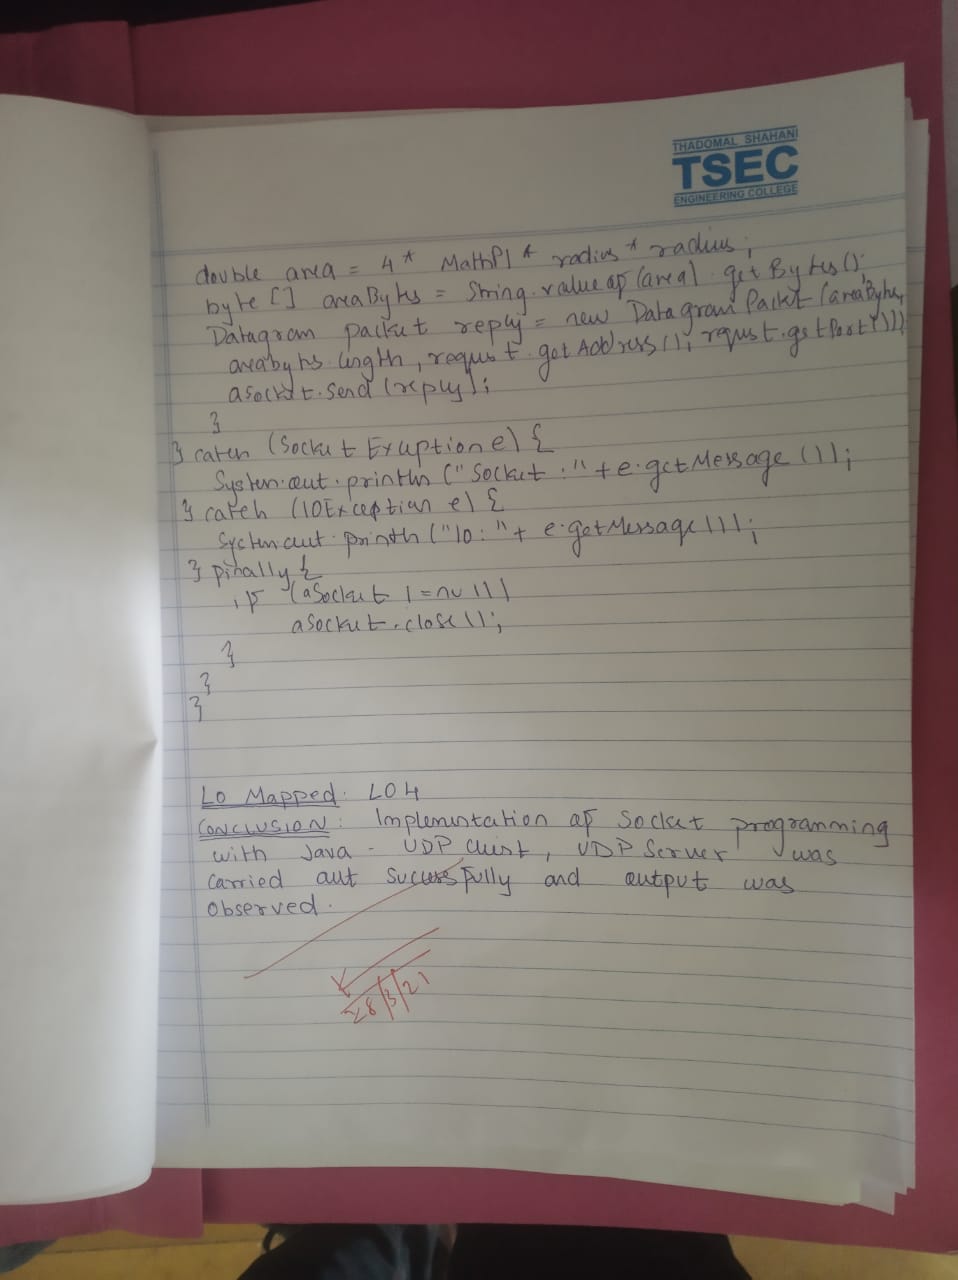 THADOMAL SHAHANI
TSEC
ENGINEERING COLLEGE
double area = 4 * MathPI * radius * radius;
byte [] areaBytes = String.valueof (area) . getBytes();
Datagram packet reply = new Datagram Packet (areaBytes,
areabytes.length, request.getAddress(), request.getPort());
asocket.send (reply);
}
} catch (Socket Exception e) {
System.out.println ("Socket:" + e.getMessage ());
} catch (IOException e) {
System out. println ("IO:" + e.getMessage ());
} finally {
if (aSocket != null)
asocket.close();
}
}
}
LO Mapped: LO4
CONCLUSION: Implementation of Socket programming
with Java - UDP Client, UDP Server was
carried out successfully and output was
observed.
28/3/21